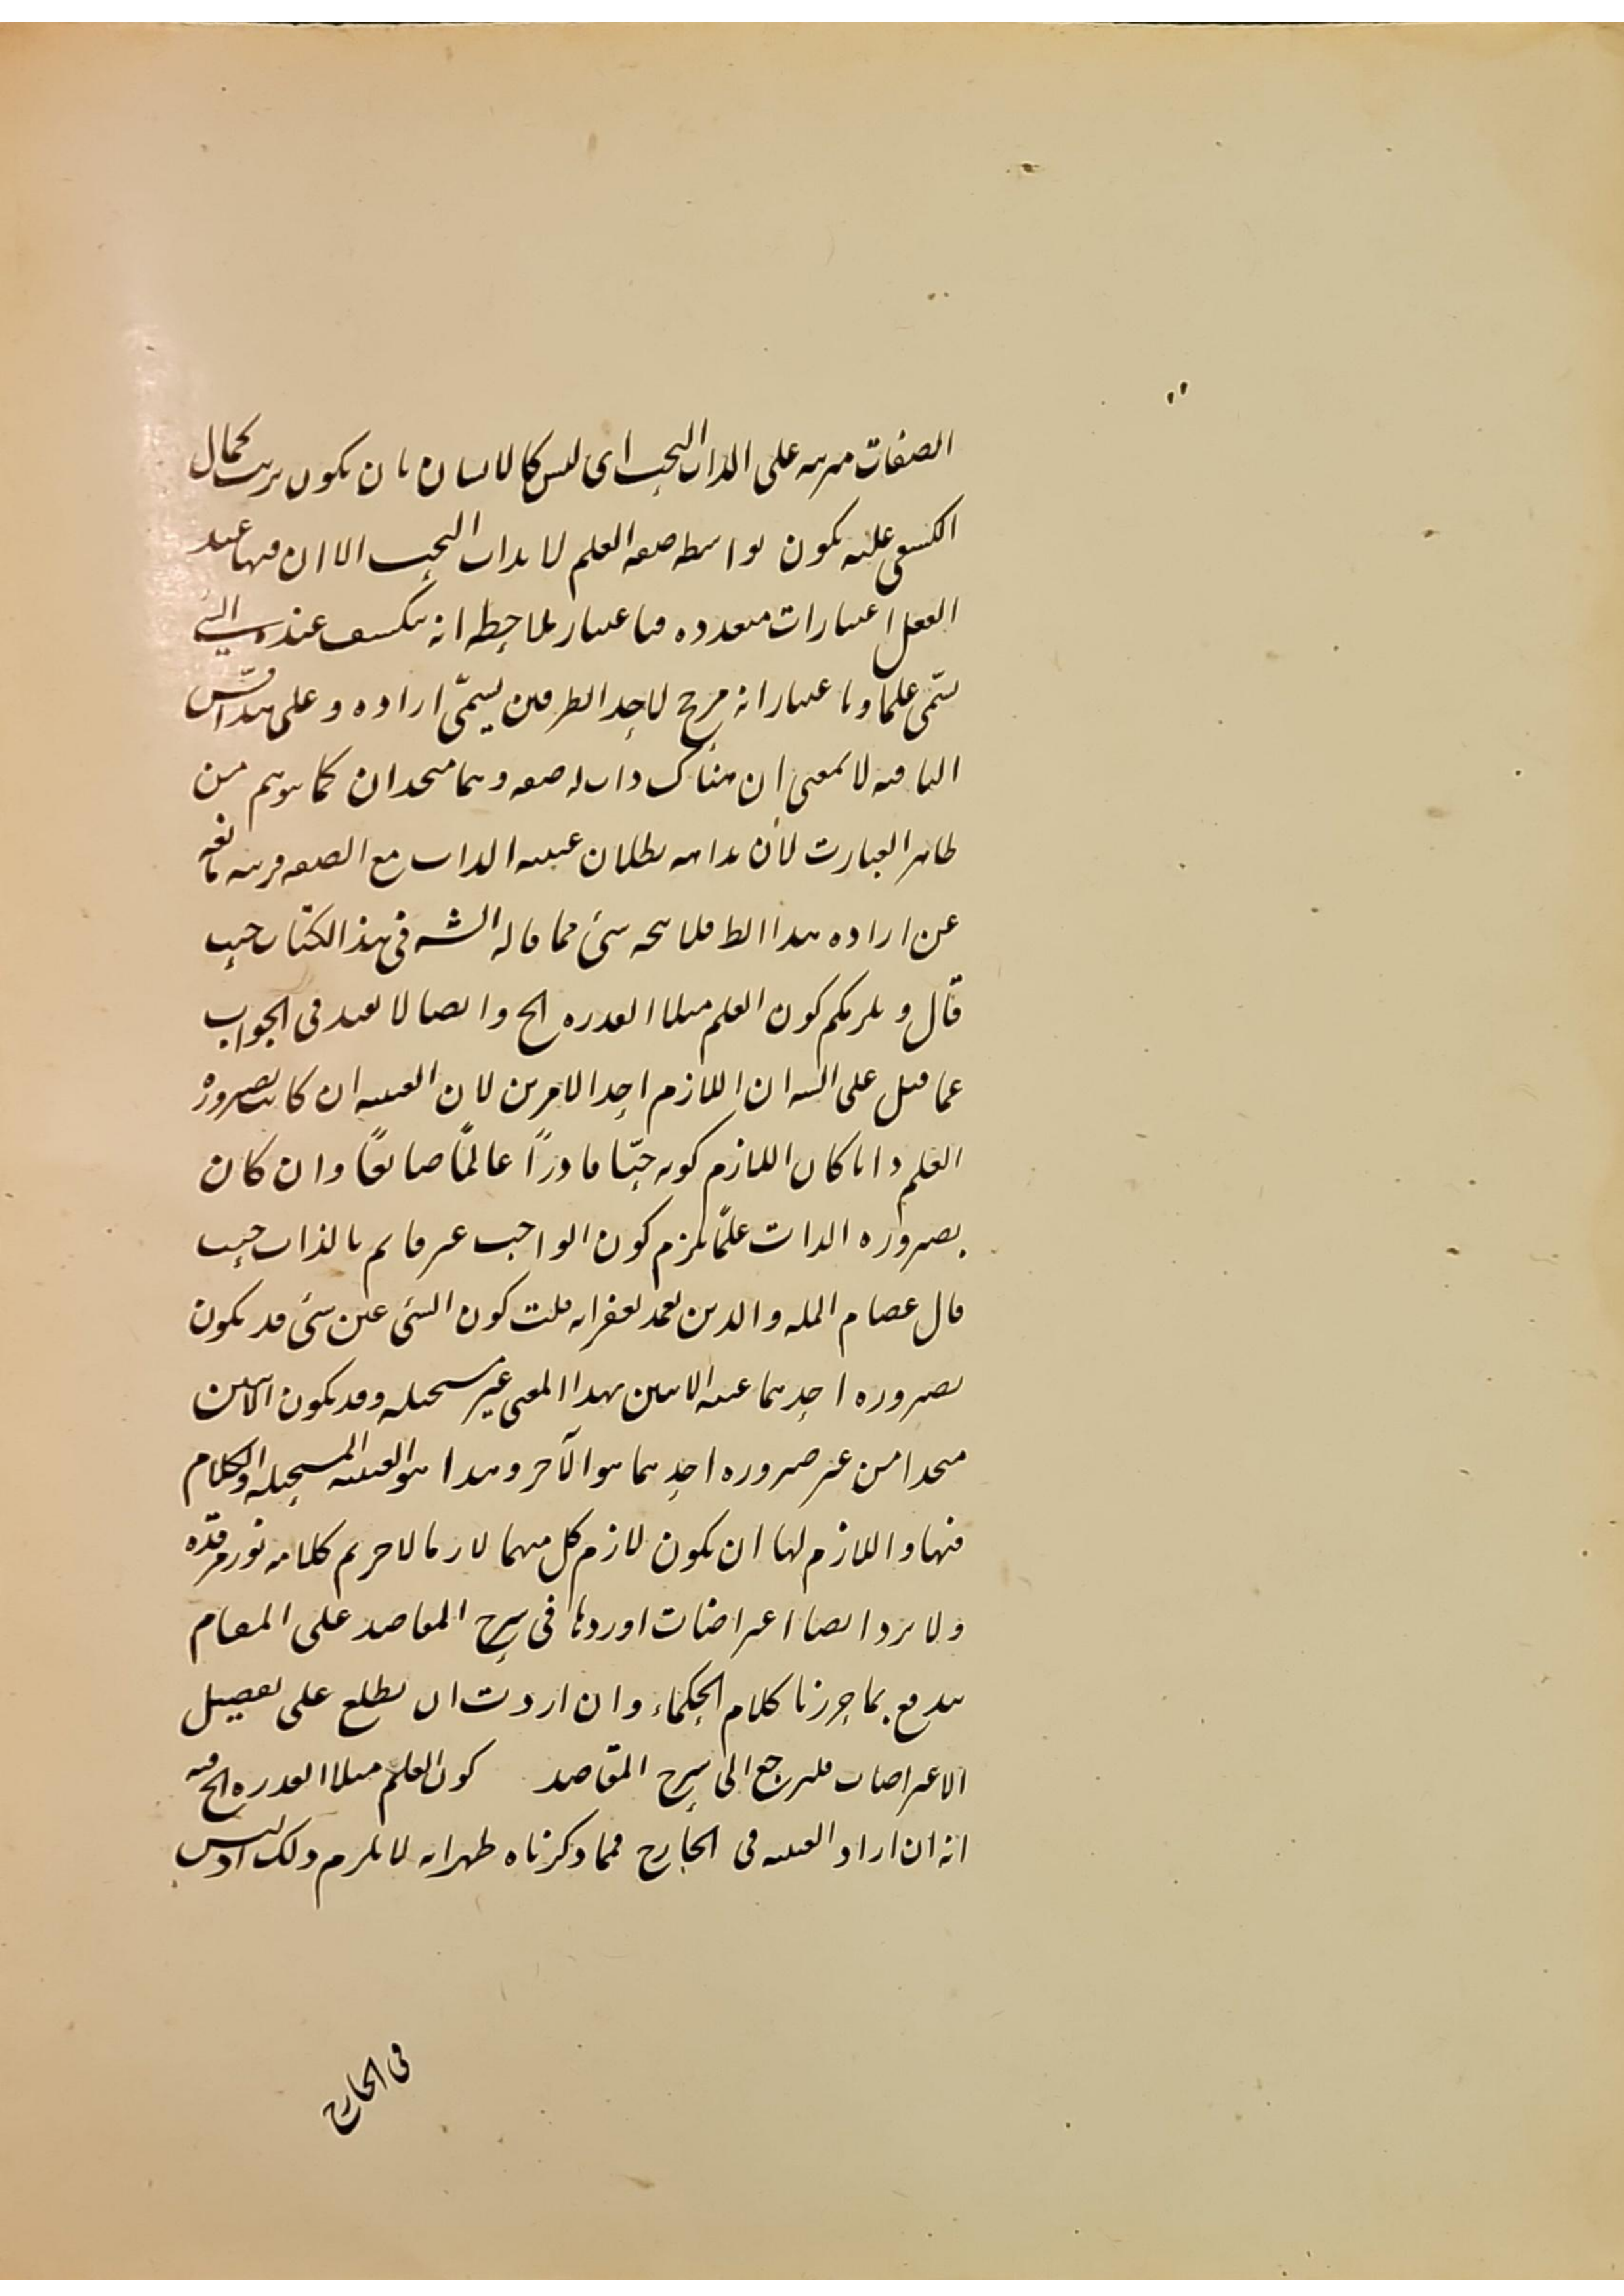 الصفات مرتبه على الذات البحت اى ليس كالانسان بان يكون ترتب كمال
الكشفى عليه يكون بواسطه صفه العلم لا بذات البحت الا ان فيها عند
العقل اعتبارات متعدده فباعتبار ملاحظه انه ينكشف عنده الشئ
يسمّى علما وباعتبار انه مرجح لاحد الطرفين يسمّى اراده وعلى هذا قس
الباقيه لا بمعنى ان هناك ذات له صفه وهما متحدان كما يوهم من
ظاهر العبارت لان بداهه بطلان عينيه الذات مع الصفه قرينه مانعه
عن اراده هذا الظ فلا يتجه شئ مما قاله الشه فى هذا الكتاب حيث
قال ويلزمكم كون العلم مثلا القدره الخ وايضا لا يفيد فى الجواب
عما قيل على الشه ان اللازم احد الامرين لان العينيه ان كانت بصيرورة
العلم ذاتا كان اللازم كونه حيّا قادرًا عالمًا صانعًا وان كان
بصيروره الذات علمًا يلزم كون الواجب غير قايم بالذات حيث
قال عصام المله والدين تغمد بغفرانه قلت كون الشئ عين شئ قد يكون
بصيروره احدهما عينه الاثنين بهذا المعنى غير مستحيله وقد يكون الاثنين
متحدا من غير صيروره احدهما هو الآخر وهذا هو العينيه المستحيله والكلام
فيها واللازم لها ان يكون لازم كل منهما لازما للاخر تم كلامه نور مرقده
ولا يرد ايضا اعتراضات اوردها فى شرح المقاصد على المقام
يندفع بما حررنا كلام الحكماء وان اردت ان تطلع على تفصيل
الاعتراضات فلترجع الى شرح المقاصد كون العلم مثلا القدره الخ فيه
انه ان اراد العينيه فى الخارج فمما ذكرناه ظهر انه لا يلزم ذلك اذ ليس
فى الخارج